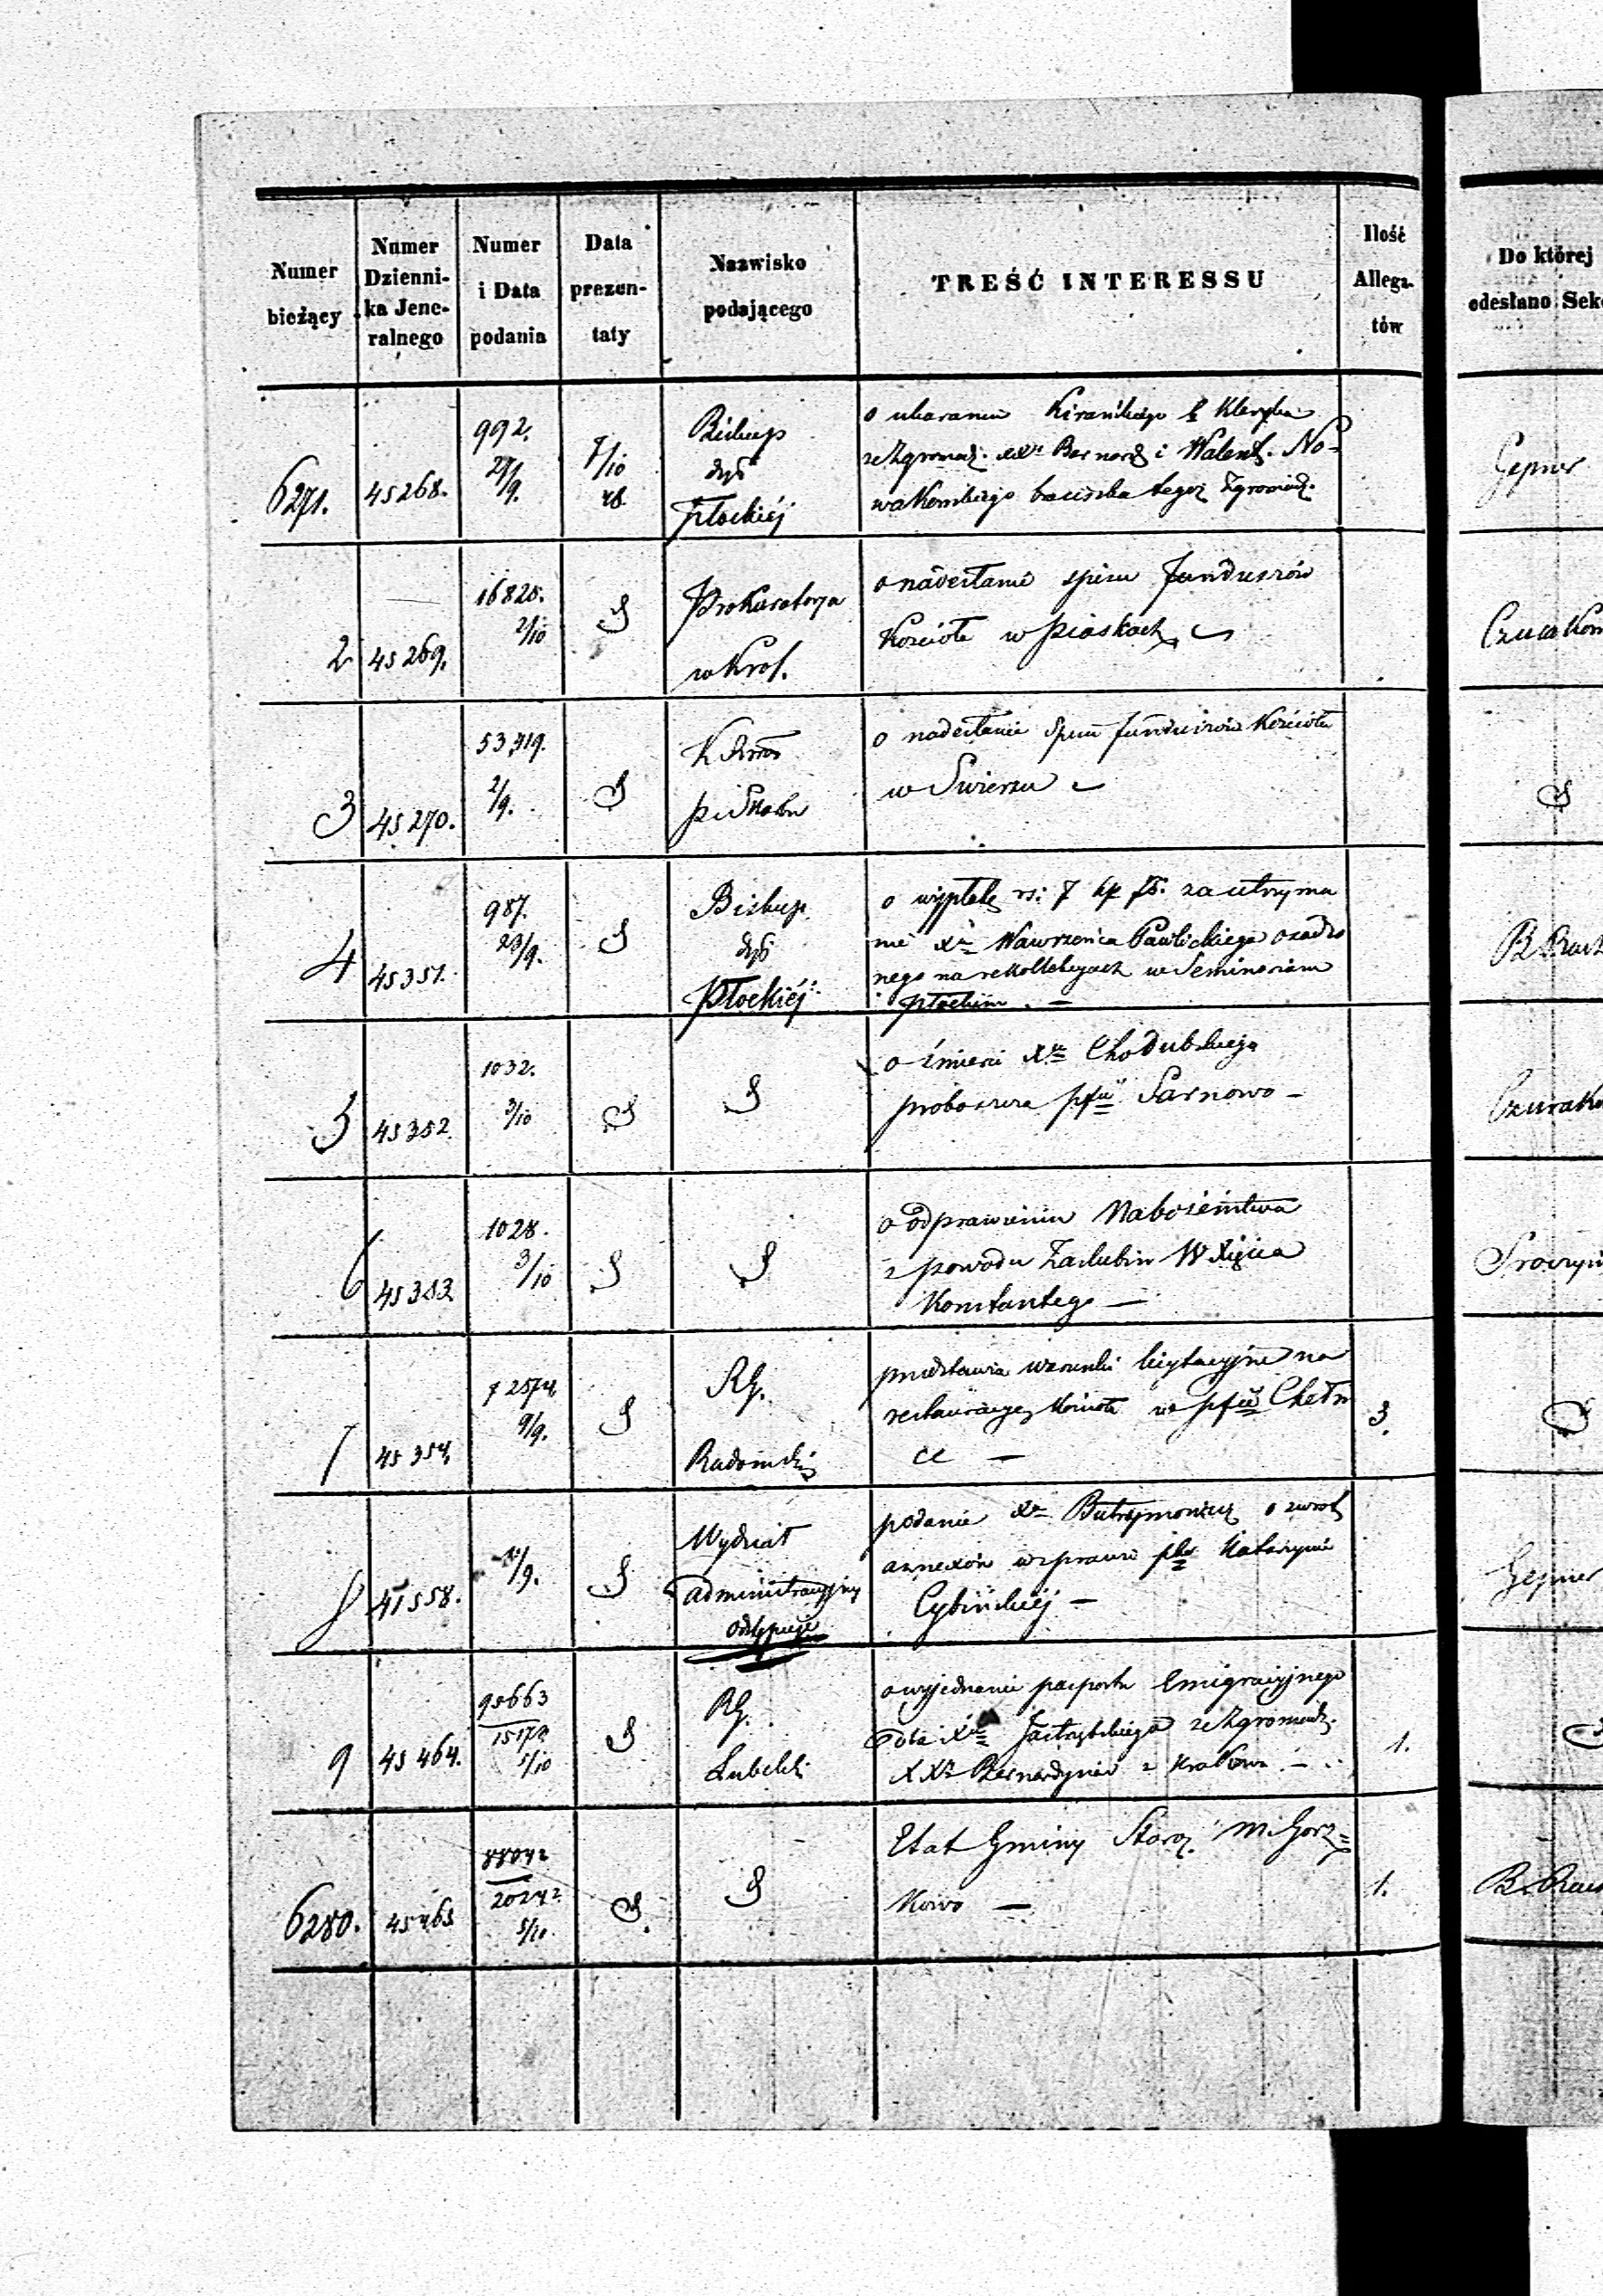 Numer bieżący
Numer Dzienni-
ka Jene-
ralnego
Numer
i Data
podania
Data
prezen-
taty
Nazwisko
podającego
TREŚĆ INTERESSU
Ilość
Allega-
tów
Do której
odesłano Sek
6271.
45268.
992.
27/9.
7/10
Biskup
dyó
Płockiéj
o ukaraniu Kleryka
ze Zgromadz. XX. Bernard i Walent. No-
wakowskiego braciszka tegoż Zgromadz.
Gepner
2
45269.
16828.
2/10
Prokuratorya
w Król.
o nadesłanie spisu funduszów
Kościoła w Piaskach
3
45270.
53,419.
2/9.
o nadesłanie spisu funduszów Kościoła
w Swierzu
4
45351.
987.
23/9.
Biskup
dyó
Płockiéj
o wypłatę rs: 7 kp 75. za utrzyma
nie Xa Wawrzeńca Pawlickiego osadzo
nego na rekollekcyach w Seminarium
Płockim. —
5
45352
1032.
3/10
o śmierci Xa Chodubskiego
proboszcza pfii Sarnowo —
6
45353
1028.
3/10
o odprawieniu Nabożeństwa
z powodu Zaślubin W Xięcia
Konstantego —
7
45354.
72574.
9/9.
RG.
Radomski
przedstawia warunki licytacyjne na
restauracyę Kościoła w pfii Chełm
ce —
3.
8
45558.
/9.
Wydział
administracyjny
odstępuje
podanie Xa Butrymowicz o zwrot
annexów w sprawie Katarzyny
Cybińskiéj —
Gepner
9
45464.
95663
15178
5/10
RG.
Lubelski
o wyjednanie pasportu Emigracyjnego
dla Xa Jastrzębskiego ze Zgromadz.
XX. Bernardynów z Krakowa. —
1.
6280.
45465
88042
20242
5/10.
Etat Gminy Staroz. M. Gorz=
kowo —
1.